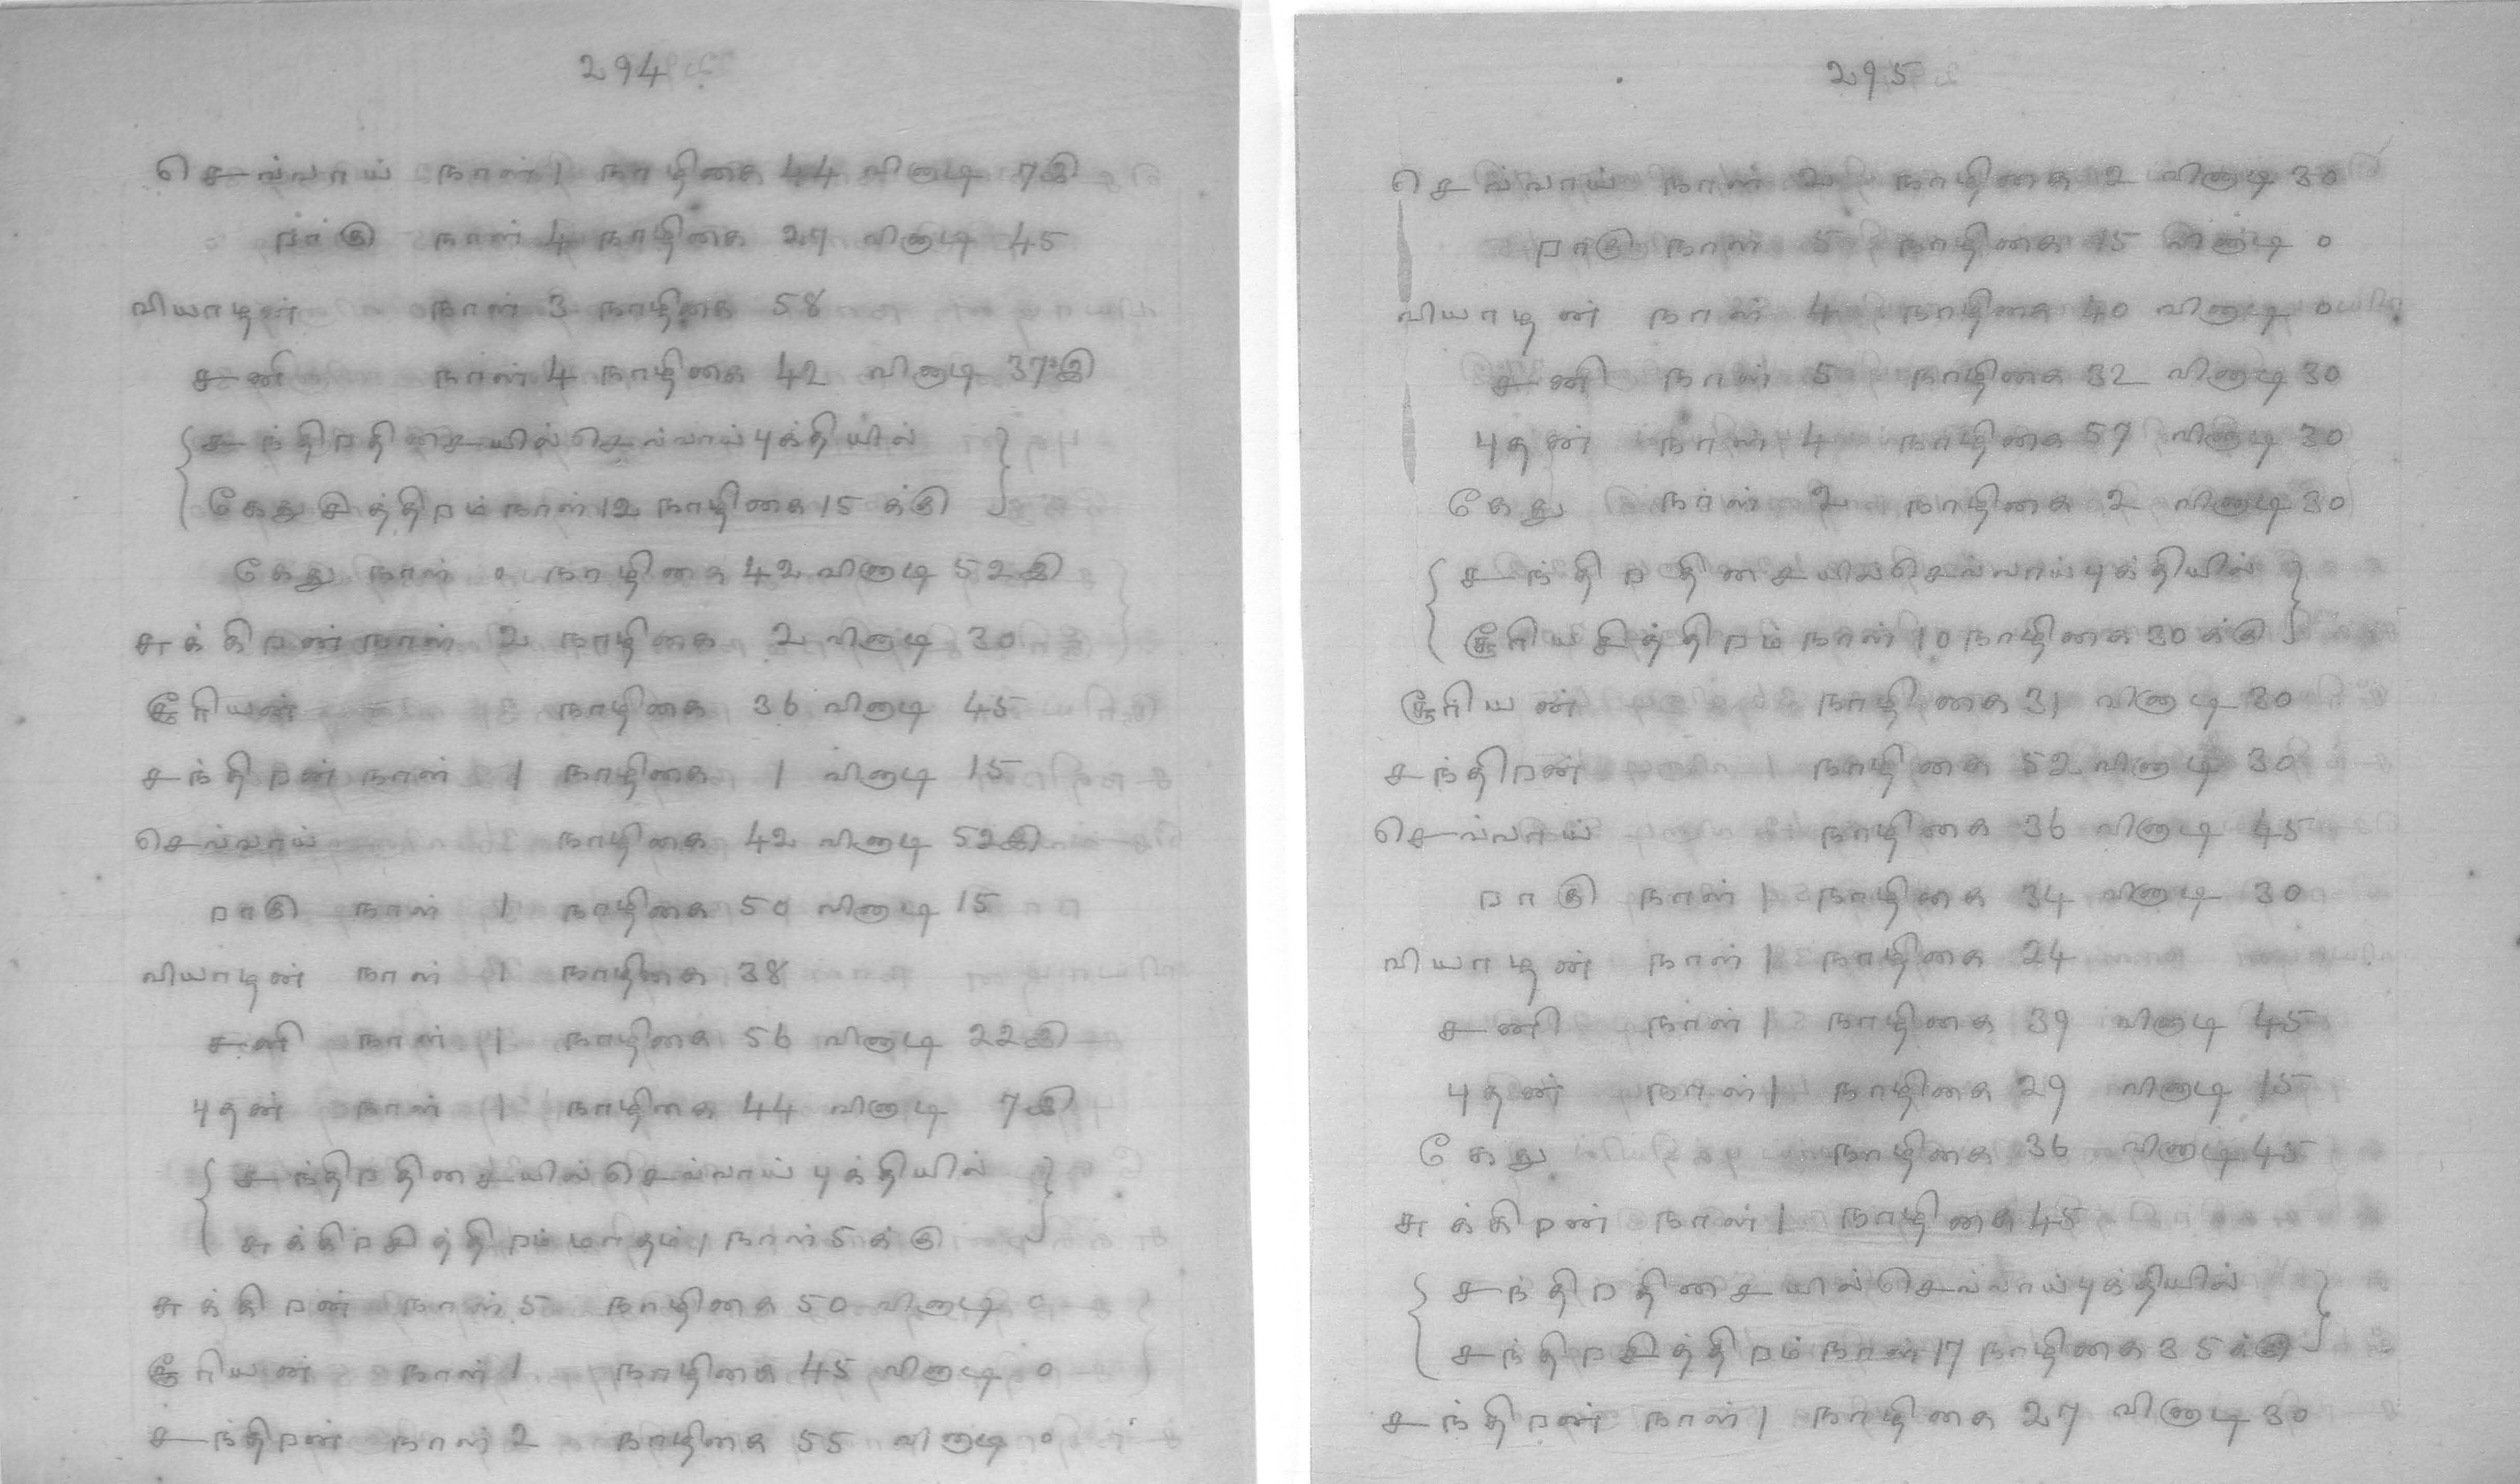 294
செவ்வாய் நாள் 1 நாழிகை 44 வினாடி 7இ
ராகு நாள் 4 நாழிகை 27 வினாடி 45
வியாழன் நாள் 3 நாழிகை 58
சனி நாள் 4 நாழிகை 42 வினாடி 37இ
{சந்திரதிசையில் செவ்வாய் புக்தியில்}
{கேது சித்திரம் நாள் 12 நாழிகை 15 க்கு}
கேது நாள் 0 நாழிகை 42 வினாடி 52இ
சுக்கிரன் நாள் 2 நாழிகை 2 வினாடி 30
சூரியன் நாழிகை 36 வினாடி 45
சந்திரன் நாள் 1 நாழிகை 1 வினாடி 15
செவ்வாய் நாழிகை 42 வினாடி 52இ
ராகு நாள் 1 நாழிகை 50 வினாடி 15
வியாழன் நாள் 1 நாழிகை 38
சனி நாள் 1 நாழிகை 56 வினாடி 22இ
புதன் நாள் 1 நாழிகை 44 வினாடி 7இ
{சந்திரதிசையில் செவ்வாய் புக்தியில்}
{சுக்கிரசித்திரம் மாதம் 1 நாள் 5 க்கு}
சுக்கிரன் நாள் 5 நாழிகை 50 வினாடி 0
சூரியன் நாள் 1 நாழிகை 45 வினாடி 0
சந்திரன் நாள் 2 நாழிகை 55 வினாடி 0
295
செவ்வாய் நாள் 2 நாழிகை 2 வினாடி 30
ராகு நாள் 5 நாழிகை 15 வினாடி 0
வியாழன் நாள் 4 நாழிகை 40 வினாடி 0
சனி நாள் 5 நாழிகை 32 வினாடி 30
புதன் நாள் 4 நாழிகை 57 வினாடி 30
கேது நாள் 2 நாழிகை 2 வினாடி 30
{சந்திரதிசையில் செவ்வாய் புக்தியில்}
{சூரியசித்திரம் நாள் 10 நாழிகை 30 க்கு}
சூரியன் நாழிகை 31 வினாடி 30
சந்திரன் நாழிகை 52 வினாடி 30
செவ்வாய் நாழிகை 36 வினாடி 45
ராகு நாள் 1 நாழிகை 34 வினாடி 30
வியாழன் நாள் 1 நாழிகை 24
சனி நாள் 1 நாழிகை 39 வினாடி 45
புதன் நாள் 1 நாழிகை 29 வினாடி 15
கேது நாழிகை 36 வினாடி 45
சுக்கிரன் நாள் 1 நாழிகை 45
{சந்திரதிசையில் செவ்வாய் புக்தியில்}
{சந்திரசித்திரம் நாள் 17 நாழிகை 35 க்கு}
சந்திரன் நாள் 1 நாழிகை 27 வினாடி 30